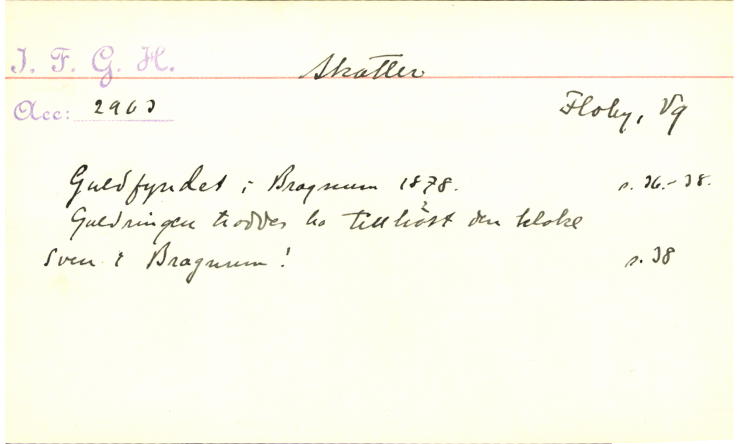 I. F. G. H. Skatter
Acc: 2963 Floby, Vg
Guldfyndet i Bragnum 1878. s. 36.-38.
Guldringen troddes ha tillhöst den kloke
Sven i Bragnum! s. 38